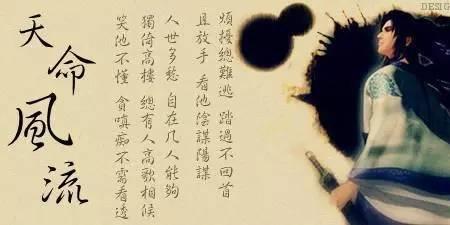 天命風流
煩擾總難逃 踏過不回首
且放手 看他陰謀陽謀
人世多愁 自在几人能夠
獨倚高樓 總有人高歌相候
笑他不懂 貪嗔痴不需看透
DESIG